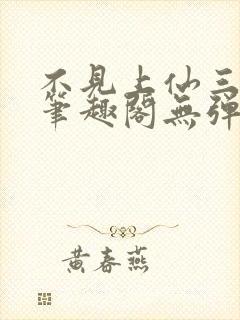 不見上仙三
筆趣閣無彈
黃春燕